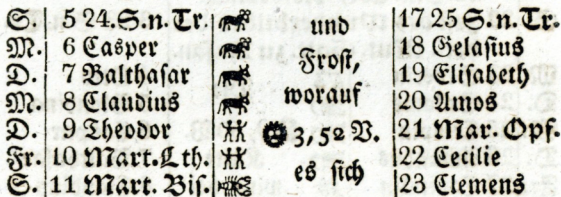 S. 5 24. S. n. Tr. und 17 25 S. n. Tr.
M. 6 Casper Frost, 18 Gelasius
D. 7 Balthasar 19 Elisabeth
M. 8 Claudius worauf 20 Amos
D. 9 Theodor 3, 52 V. 21 Mar. Opf.
Fr. 10 Mart. Lth. es sich 22 Cecilie
S. 11 Mart. Bis. 23 Clemens